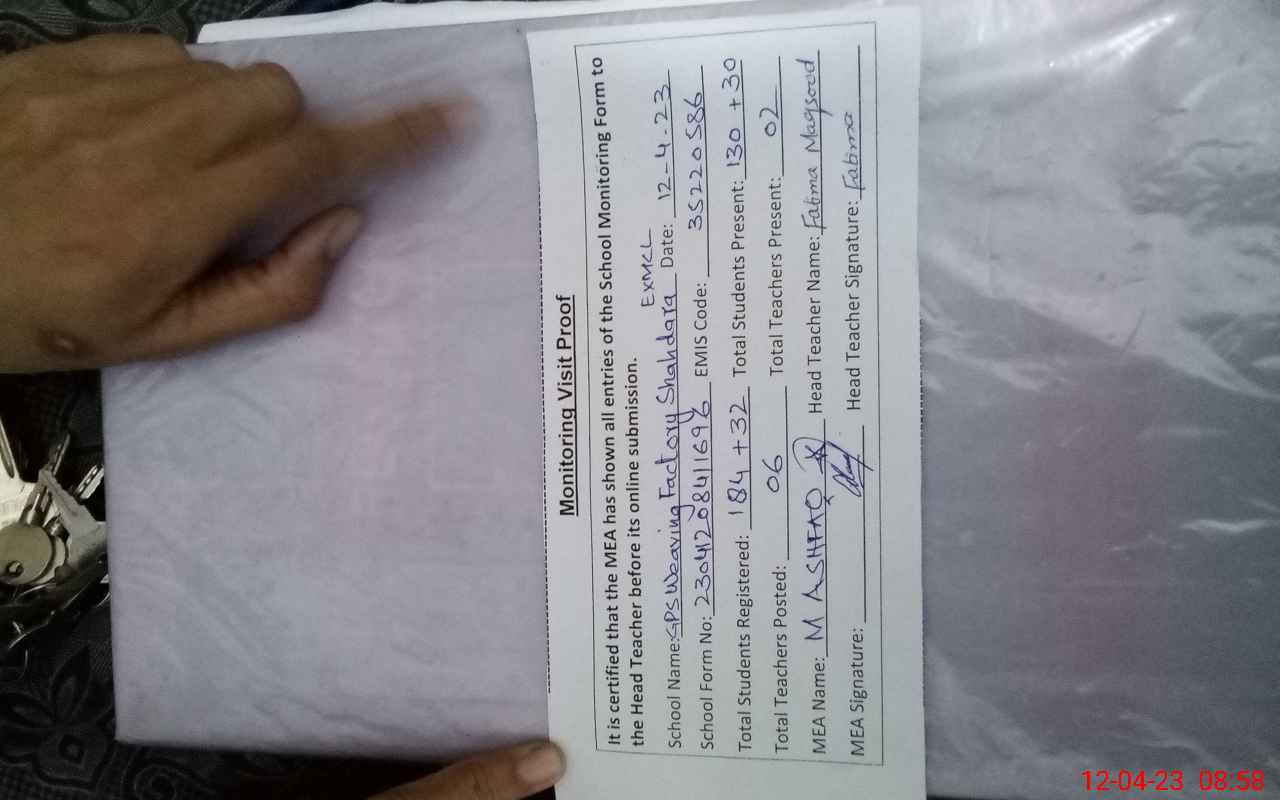 Monitoring Visit Proof
It is certified that the MEA has shown all entries of the School Monitoring Form to
the Head Teacher before its online submission.
ExMCL
School Name: GPS Weaving Factory Shahdara Date: 12-4-23
School Form No: EMIS Code: 35220586
Total Students Registered: 184 + 32 Total Students Present: 130 + 30
Total Teachers Posted: 06 Total Teachers Present: 02
MEA Name: M ASHFAQ Head Teacher Name: Fatima Maqsood
MEA Signature: Head Teacher Signature: Fatima
12-04-23 08:58